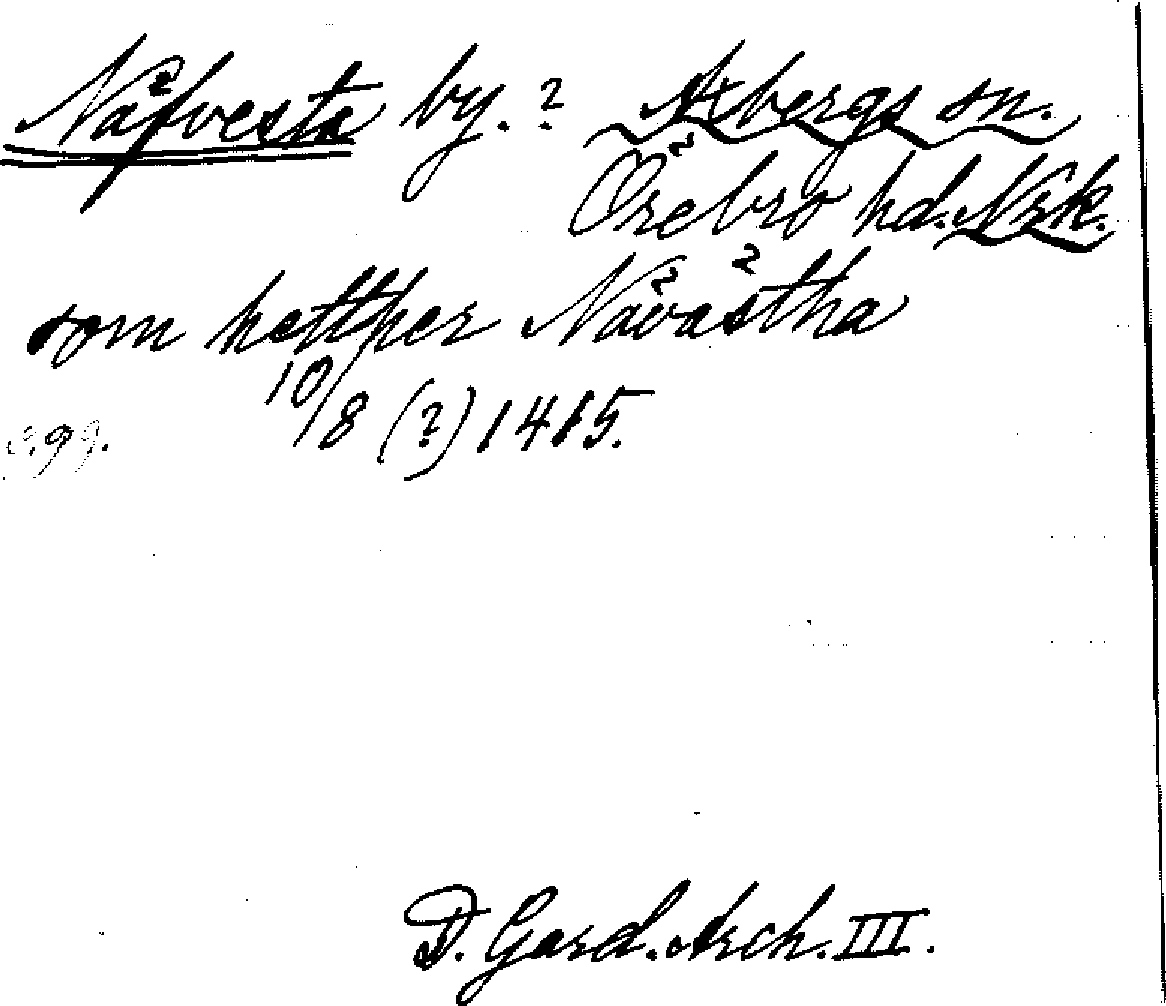 Näfvesta by. ? Axbergs sn.
Örebro hd. Nrk.
som hetther Nävästha
10/8 (?) 1415.
s. 99.
D. Gard. Arch. III.